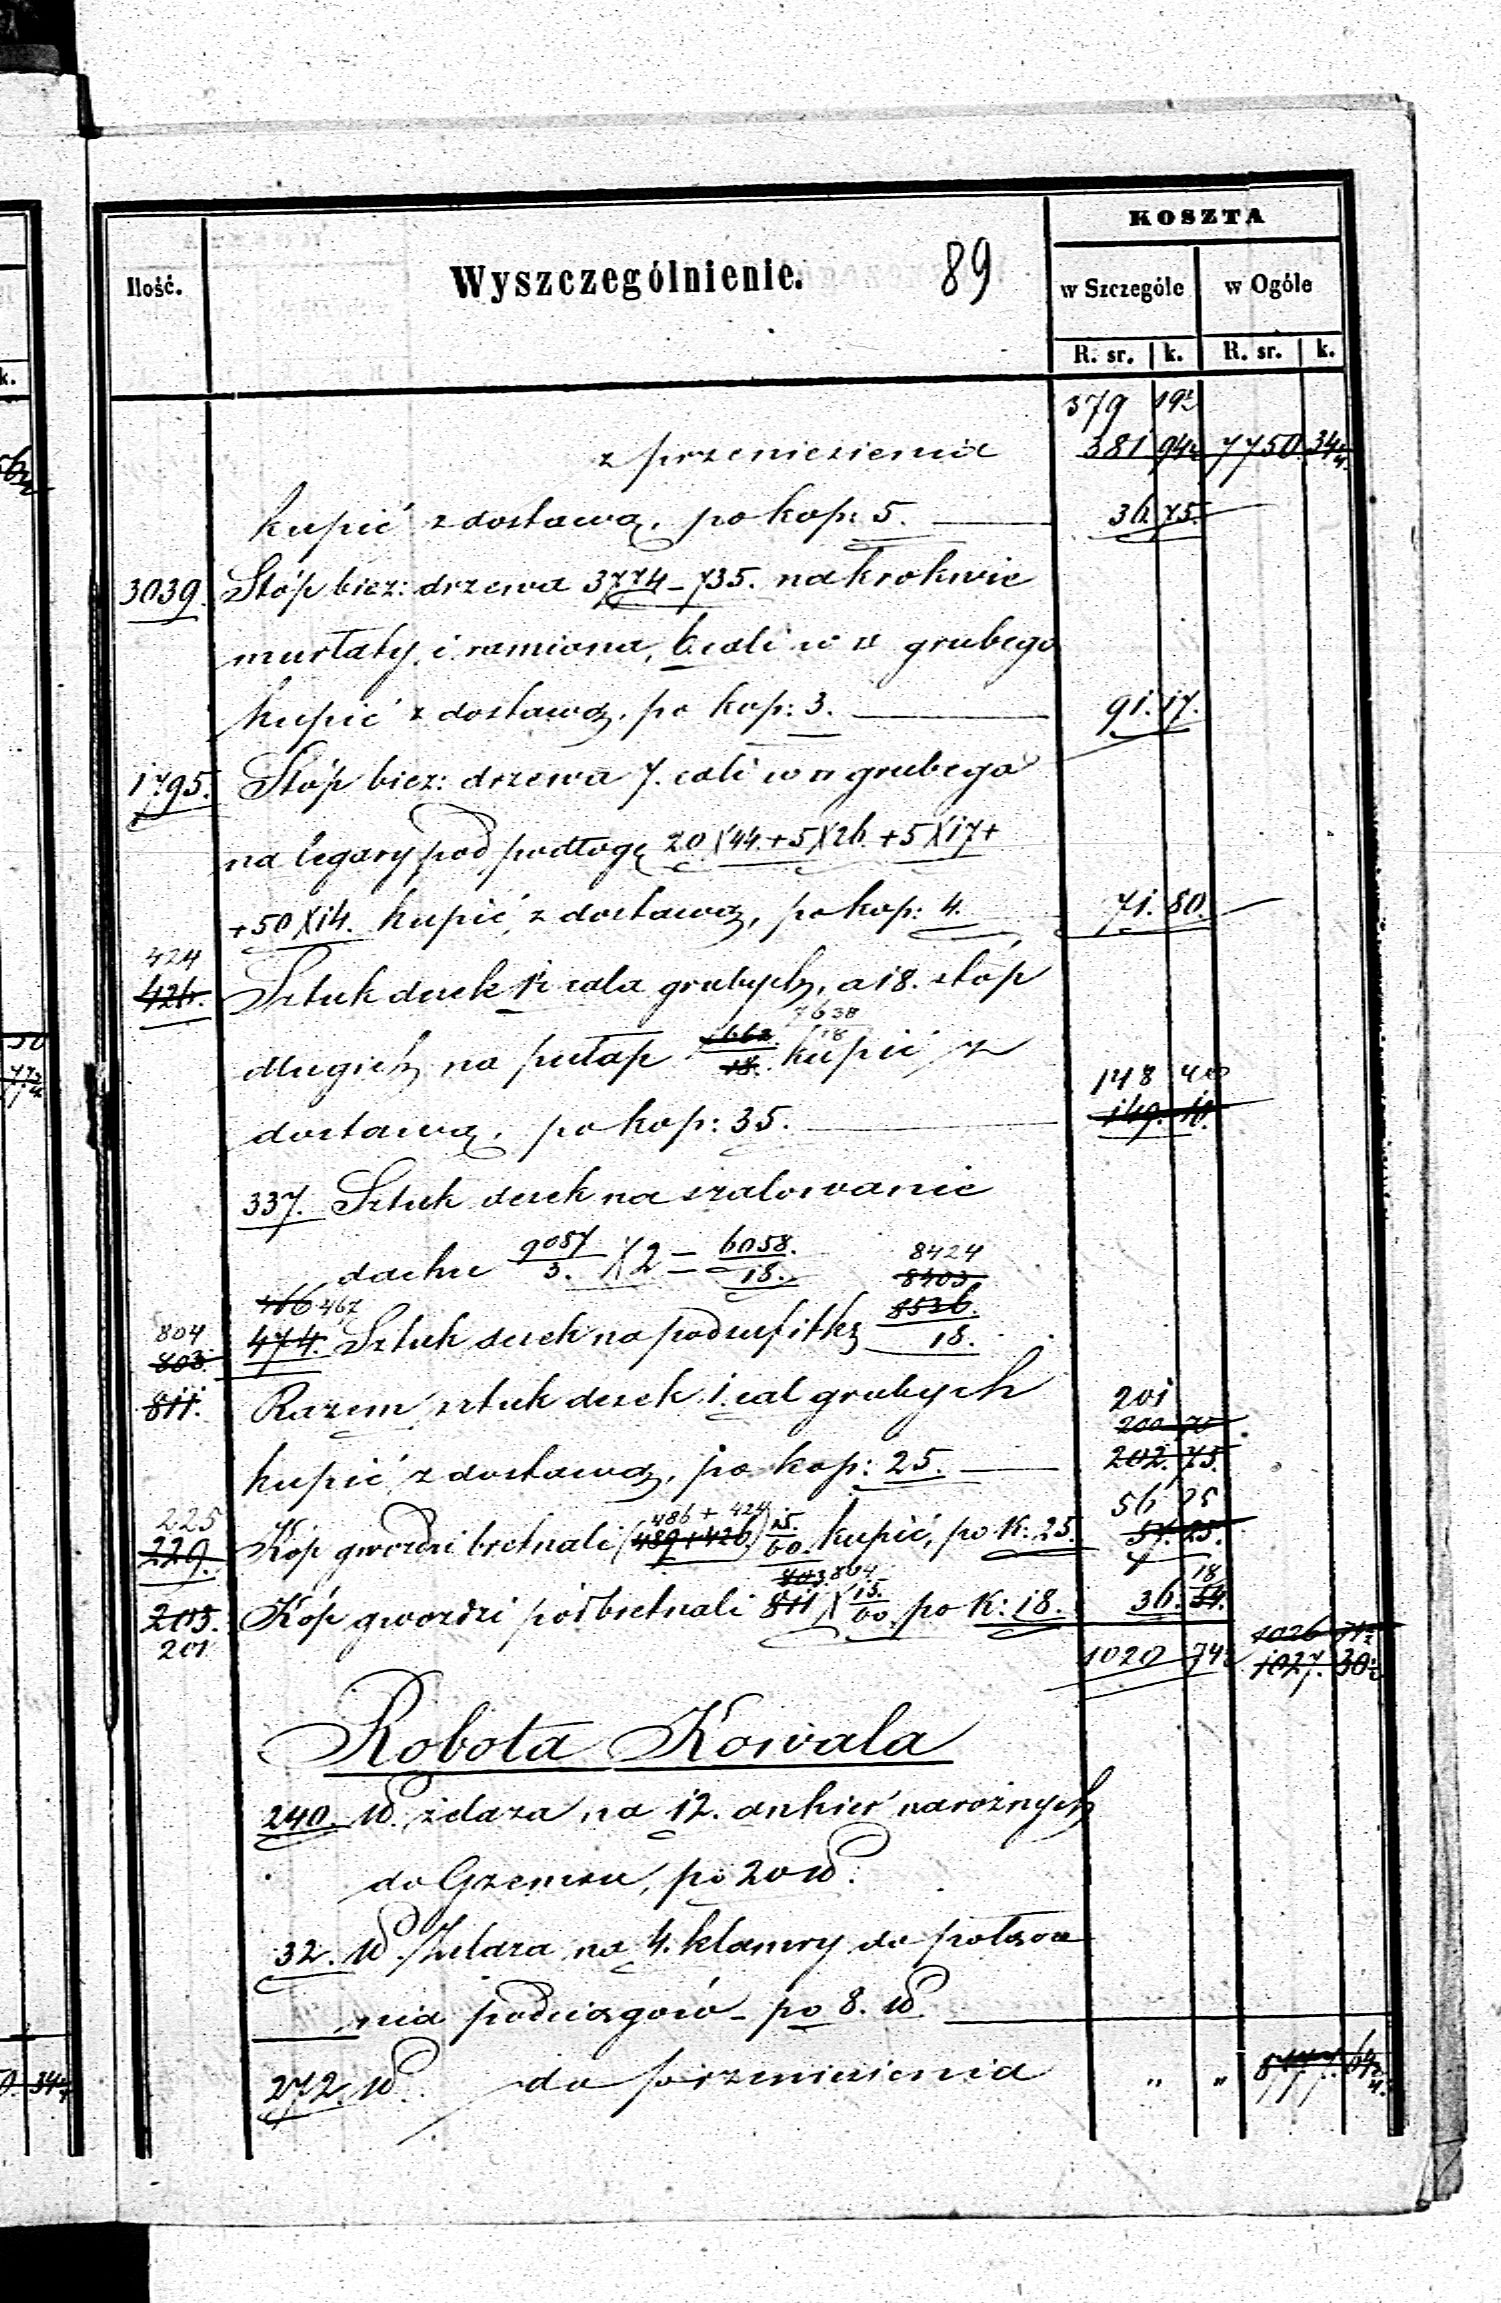 KOSZTA
Ilość. Wyszczególnienie. 89 w Szczególe w Ogóle
R. sr. k. R. sr. k.
379 19½
z przeniesienia 381 94½ 7750. 34¼
kupić z dostawą, po kop: 5. 36. 75.
3039. Stóp bież: drzewa 3774–735. na krokwie
murłaty, i ramiona, 6 cali w □ grubego
kupić z dostawą, po kop: 3. 91. 17.
1795. Stóp bież: drzewa 7. cali w □ grubego
na legary pod podłogę 20X44.+5X26.+5X17+
+50X14. kupić z dostawą, po kop: 4. 71. 80.
424
426. Sztuk desek 1½ cala grubych, a 18. stóp
7638
długich, na pułap 18. 18 kupić z
148 40
dostawą, po kop: 35. 149. 10.
337. Sztuk desek na szalowanie
dachu 9087/3. X2 = 6058./18. 8424
8403.
466 467 8536.
804 474. Sztuk desek na podsufitkę 18.
803.
811. Razem sztuk desek 1. cal grubych 201
200 75
kupić z dostawą, po kop: 25. 202. 75.
225 486 + 424 56 25
229. Kóp gwoździ bretnali (489+426.) 15./60. kupić, po K: 25. 57. 25.
803. 804. 18
203. Kóp gwoździ półbretnali 811 X 15./60. po K: 18. 36. 54.
201 1026 71½
1020 74½ 1027. 30½
Robota Kowala
240. ℔. żelaza na 12. ankier narożnych
do Gzemsu, po 20 ℔.
32. ℔. Żelaza na 4. klamry do połącze
nia podciągów – po 8. ℔.
272. ℔. do przeniesienia " " 8777. 64¾.